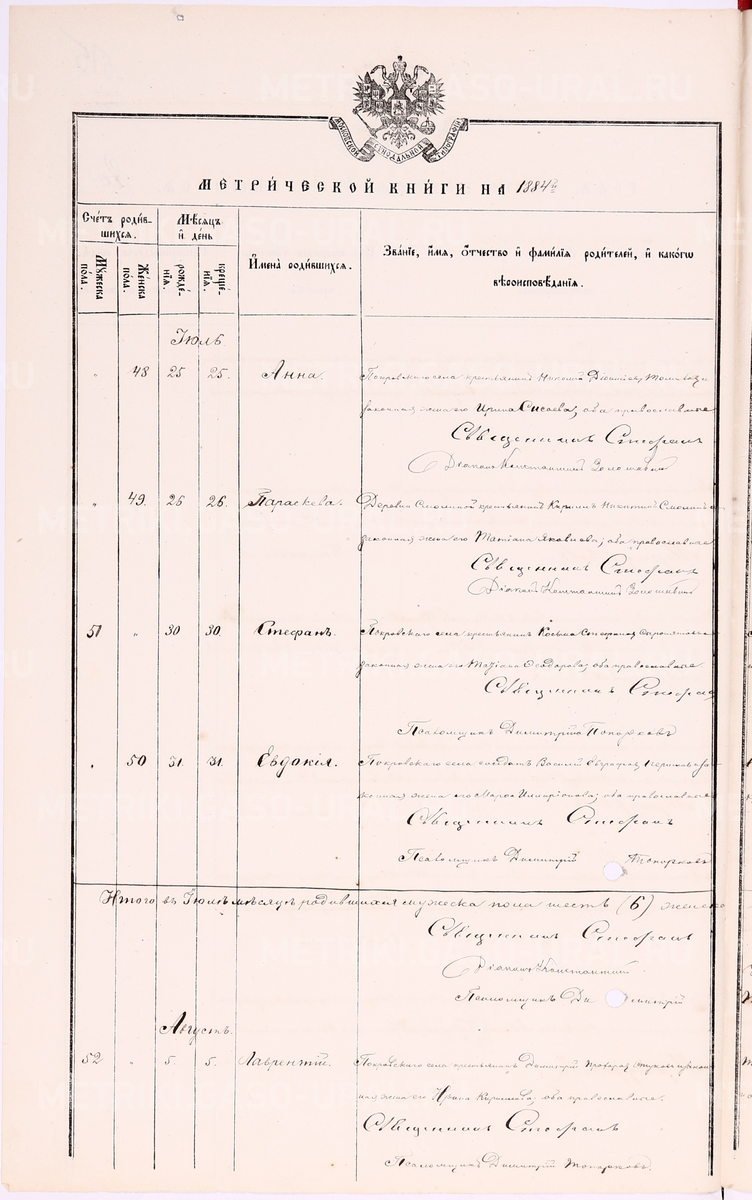 МЕТРИ́ЧЕСКОЙ КНИ́ГИ НА 1884 г.
Сче́тъ роди́в-
шихся.
Мѣ́сяцъ
и́ де́нь
И҆мена̀ родившихся.
Зва́нїе, и҆́мя, ѻ҆́тчество и҆ фами́лїя роди́телей, и҆ какогѡ
вѣроисповѣ́данїя.
Мꙋ́жеска
по́ла.
Же́нска
по́ла.
рожде́-
нїя.
креще́-
нїя.
Іюль.
" 48 25 25. Анна. Покровскаго села крестьянинъ Николай
законная жена его Ирина Сисоева; оба православные
Священникъ Стефанъ
Діаконъ Константинъ
" 49. 25 26. Параскева. Деревни Смолиной крестьянинъ Никитинъ
законная жена его Татіана Яковлева; оба православные
Священникъ Стефанъ
Діаконъ Константинъ
51 " 30 30. Стефанъ. Покровскаго села крестьянинъ Косьма Стефановъ
законная жена его Татіана Ѳеодорова; оба православные.
Священникъ Стефанъ
Псаломщикъ Димитрій Топорковъ
" 50 31. 31. Евдокія. Покровскаго села солдатъ Василій за-
конная жена его Марѳа Иларіонова; оба православные
Священникъ Стефанъ
Псаломщикъ Димитрій Топорковъ
Итого въ Іюлѣ мѣсяцѣ родившихся мужеска пола шесть (6) женска
Священникъ Стефанъ
Діаконъ Константинъ
Псаломщикъ Димитрій
Августъ.
52 " 5. 5. Лаврентій. Покровскаго села крестьянинъ Димитрій закон-
ная жена его Ирина Кирилова; оба православные.
Священникъ Стефанъ
Псаломщикъ Димитрій Топорковъ.